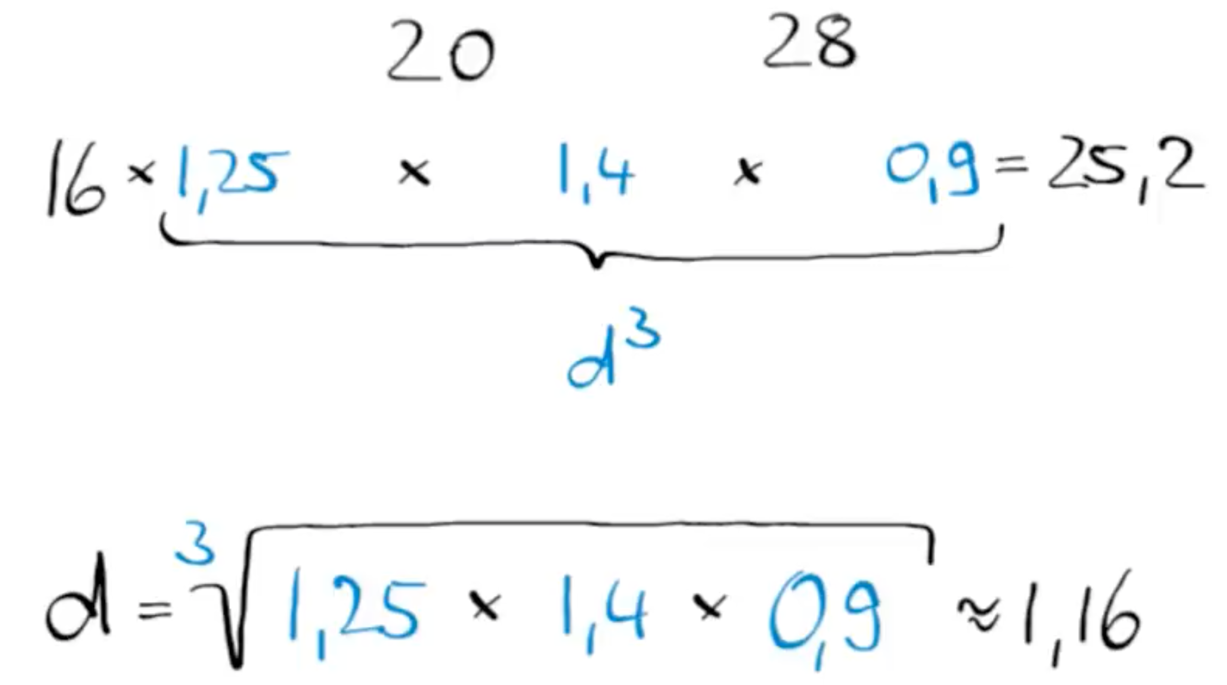 20 28
16 × 1,25 × 1,4 × 0,9 = 25,2
d³
d = ³√1,25 × 1,4 × 0,9 ≈ 1,16